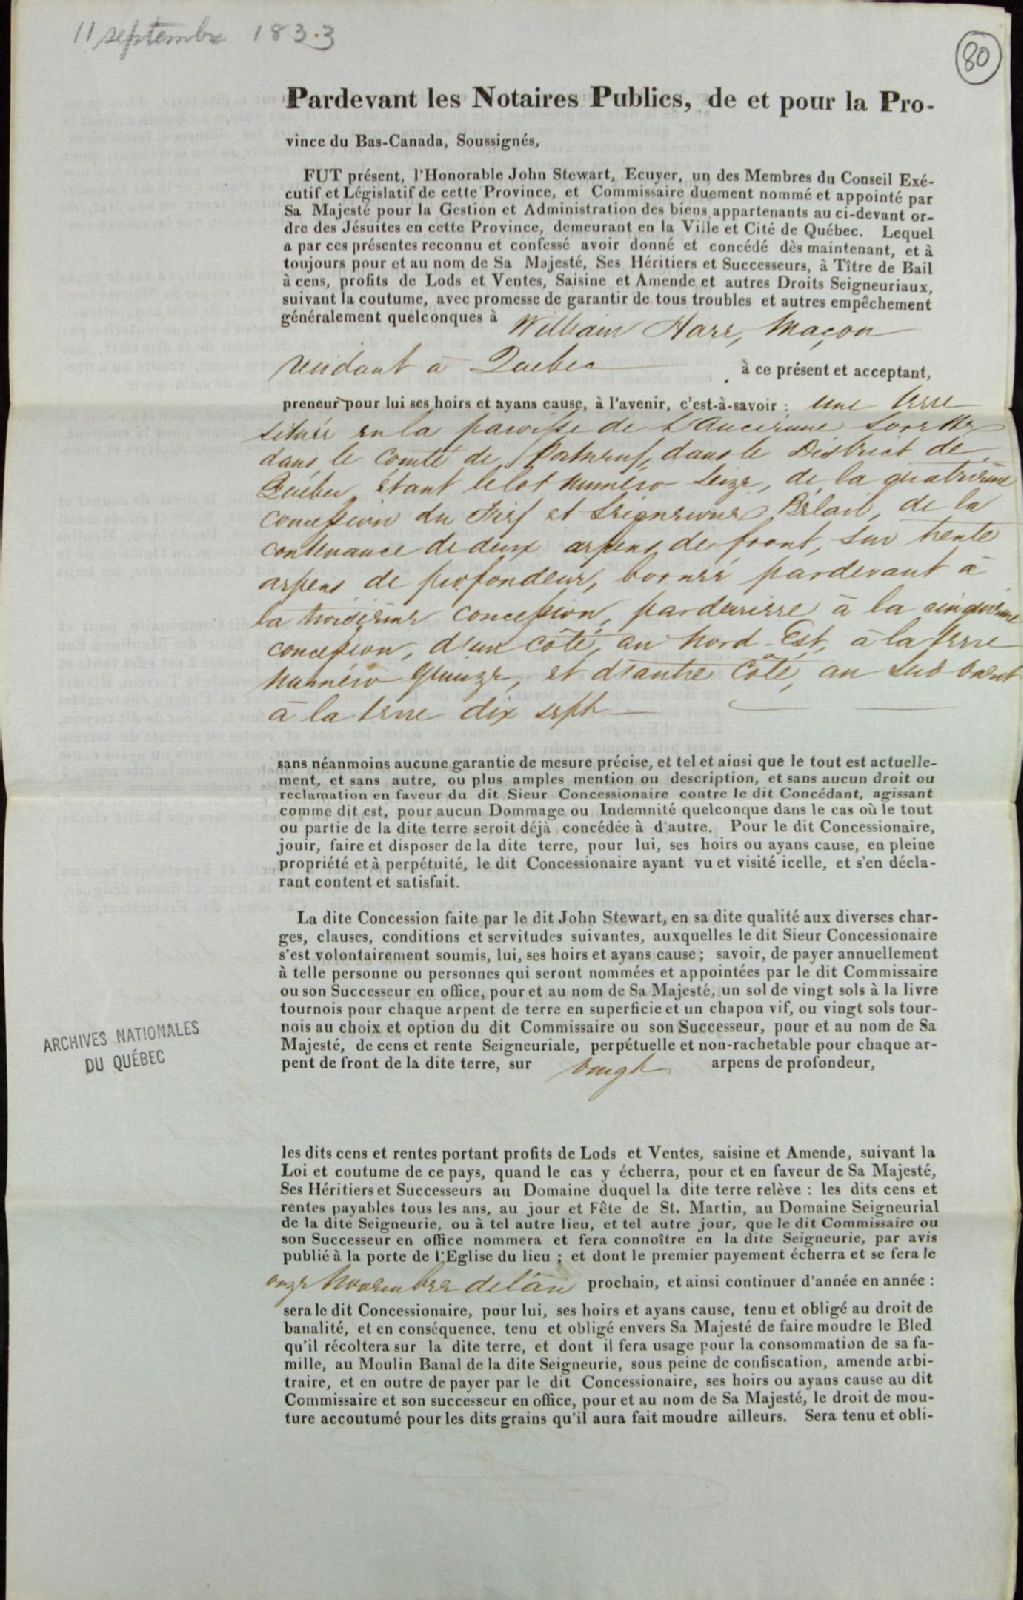 11 septembre 1833
80
Pardevant les Notaires Publics, de et pour la Pro-
vince du Bas-Canada, Soussignés,
FUT présent, l'Honorable John Stewart, Ecuyer, un des Membres du Conseil Exé-
cutif et Législatif de cette Province, et Commissaire duement nommé et appointé par
Sa Majesté pour la Gestion et Administration des biens appartenants au ci-devant or-
dre des Jésuites en cette Province, demeurant en la Ville et Cité de Québec. Lequel
a par ces présentes reconnu et confessé avoir donné et concédé dès maintenant, et à
toujours pour et au nom de Sa Majesté, Ses Héritiers et Successeurs, à Tître de Bail
à cens, profits de Lods et Ventes, Saisine et Amende et autres Droits Seigneuriaux,
suivant la coutume, avec promesse de garantir de tous troubles et autres empêchement
généralement quelconques à William Harr, Maçon
residant à Quebec à ce présent et acceptant,
preneur pour lui ses hoirs et ayans cause, à l'avenir, c'est-à-savoir : une terre
située en la paroisse de L'Ancienne Lorette
dans le comté de Portneuf, dans le District de
Québec, étant le lot numéro seize, de la quatrième
concession du Fief et Seigneurie Bélair, de la
contenance de deux arpens de front, sur trente
arpens de profondeur, borné pardevant à
la troisieme concession, parderriere à la cinquieme
concession, d'un côté, au Nord Est, à la terre
numéro Quinze, et d'autre Côté, au Sud ouest
à la terre dix sept
sans néanmoins aucune garantie de mesure précise, et tel et ainsi que le tout est actuelle-
ment, et sans autre, ou plus amples mention ou description, et sans aucun droit ou
reclamation en faveur du dit Sieur Concessionaire contre le dit Concédant, agissant
comme dit est, pour aucun Dommage ou Indemnité quelconque dans le cas où le tout
ou partie de la dite terre seroit déjà concédée à d'autre. Pour le dit Concessionaire,
jouir, faire et disposer de la dite terre, pour lui, ses hoirs ou ayans cause, en pleine
propriété et à perpétuité, le dit Concessionaire ayant vu et visité icelle, et s'en décla-
rant content et satisfait.
La dite Concession faite par le dit John Stewart, en sa dite qualité aux diverses char-
ges, clauses, conditions et servitudes suivantes, auxquelles le dit Sieur Concessionaire
s'est volontairement soumis, lui, ses hoirs et ayans cause ; savoir, de payer annuellement
à telle personne ou personnes qui seront nommées et appointées par le dit Commissaire
ou son Successeur en office, pour et au nom de Sa Majesté, un sol de vingt sols à la livre
tournois pour chaque arpent de terre en superficie et un chapon vif, ou vingt sols tour-
nois au choix et option du dit Commissaire ou son Successeur, pour et au nom de Sa
Majesté, de cens et rente Seigneuriale, perpétuelle et non-rachetable pour chaque ar-
pent de front de la dite terre, sur vingt arpens de profondeur,
ARCHIVES NATIONALES
DU QUÉBEC
les dits cens et rentes portant profits de Lods et Ventes, saisine et Amende, suivant la
Loi et coutume de ce pays, quand le cas y écherra, pour et en faveur de Sa Majesté,
Ses Héritiers et Successeurs au Domaine duquel la dite terre relève : les dits cens et
rentes payables tous les ans, au jour et Fête de St. Martin, au Domaine Seigneurial
de la dite Seigneurie, ou à tel autre lieu, et tel autre jour, que le dit Commissaire ou
son Successeur en office nommera et fera connoître en la dite Seigneurie, par avis
publié à la porte de l'Eglise du lieu ; et dont le premier payement écherra et se fera le
onze Novembre de l'an prochain, et ainsi continuer d'année en année :
sera le dit Concessionaire, pour lui, ses hoirs et ayans cause, tenu et obligé au droit de
banalité, et en conséquence, tenu et obligé envers Sa Majesté de faire moudre le Bled
qu'il récoltera sur la dite terre, et dont il fera usage pour la consommation de sa fa-
mille, au Moulin Banal de la dite Seigneurie, sous peine de confiscation, amende arbi-
traire, et en outre de payer par le dit Concessionaire, ses hoirs ou ayans cause au dit
Commissaire et son successeur en office, pour et au nom de Sa Majesté, le droit de mou-
ture accoutumé pour les dits grains qu'il aura fait moudre ailleurs. Sera tenu et obli-